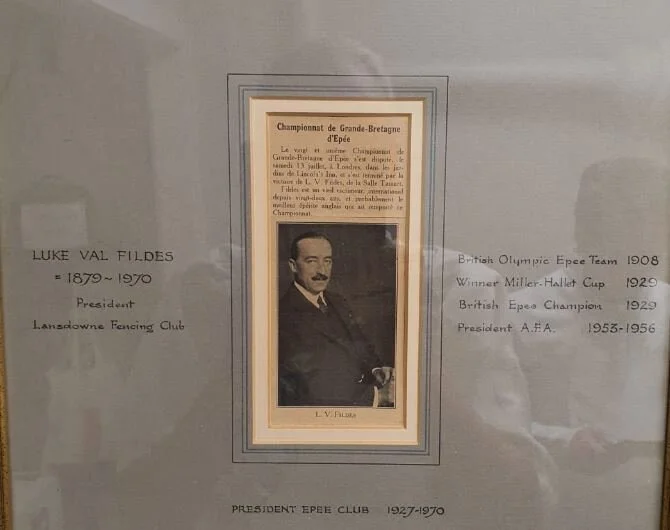 Championnat de Grande-Bretagne
d'Epée
Le vingt et unième Championnat de
Grande-Bretagne d'Epée s'est disputé, le
samedi 13 juillet, à Londres, dans les jar-
dins de Lincoln's Inn, et s'est terminé par la
victoire de L. V. Fildes, de la Salle Tassart.
Fildes est un vieil escrimeur, international
depuis vingt-deux ans, et probablement le
meilleur épéiste anglais qui ait remporté ce
Championnat.
L. V. FILDES
LUKE VAL FILDES
1879~1970
President
Lansdowne Fencing Club
British Olympic Epee Team 1908
Winner Miller-Hallet Cup 1929
British Epee Champion 1929
President A.F.A. 1953-1956
PRESIDENT EPEE CLUB 1927-1970